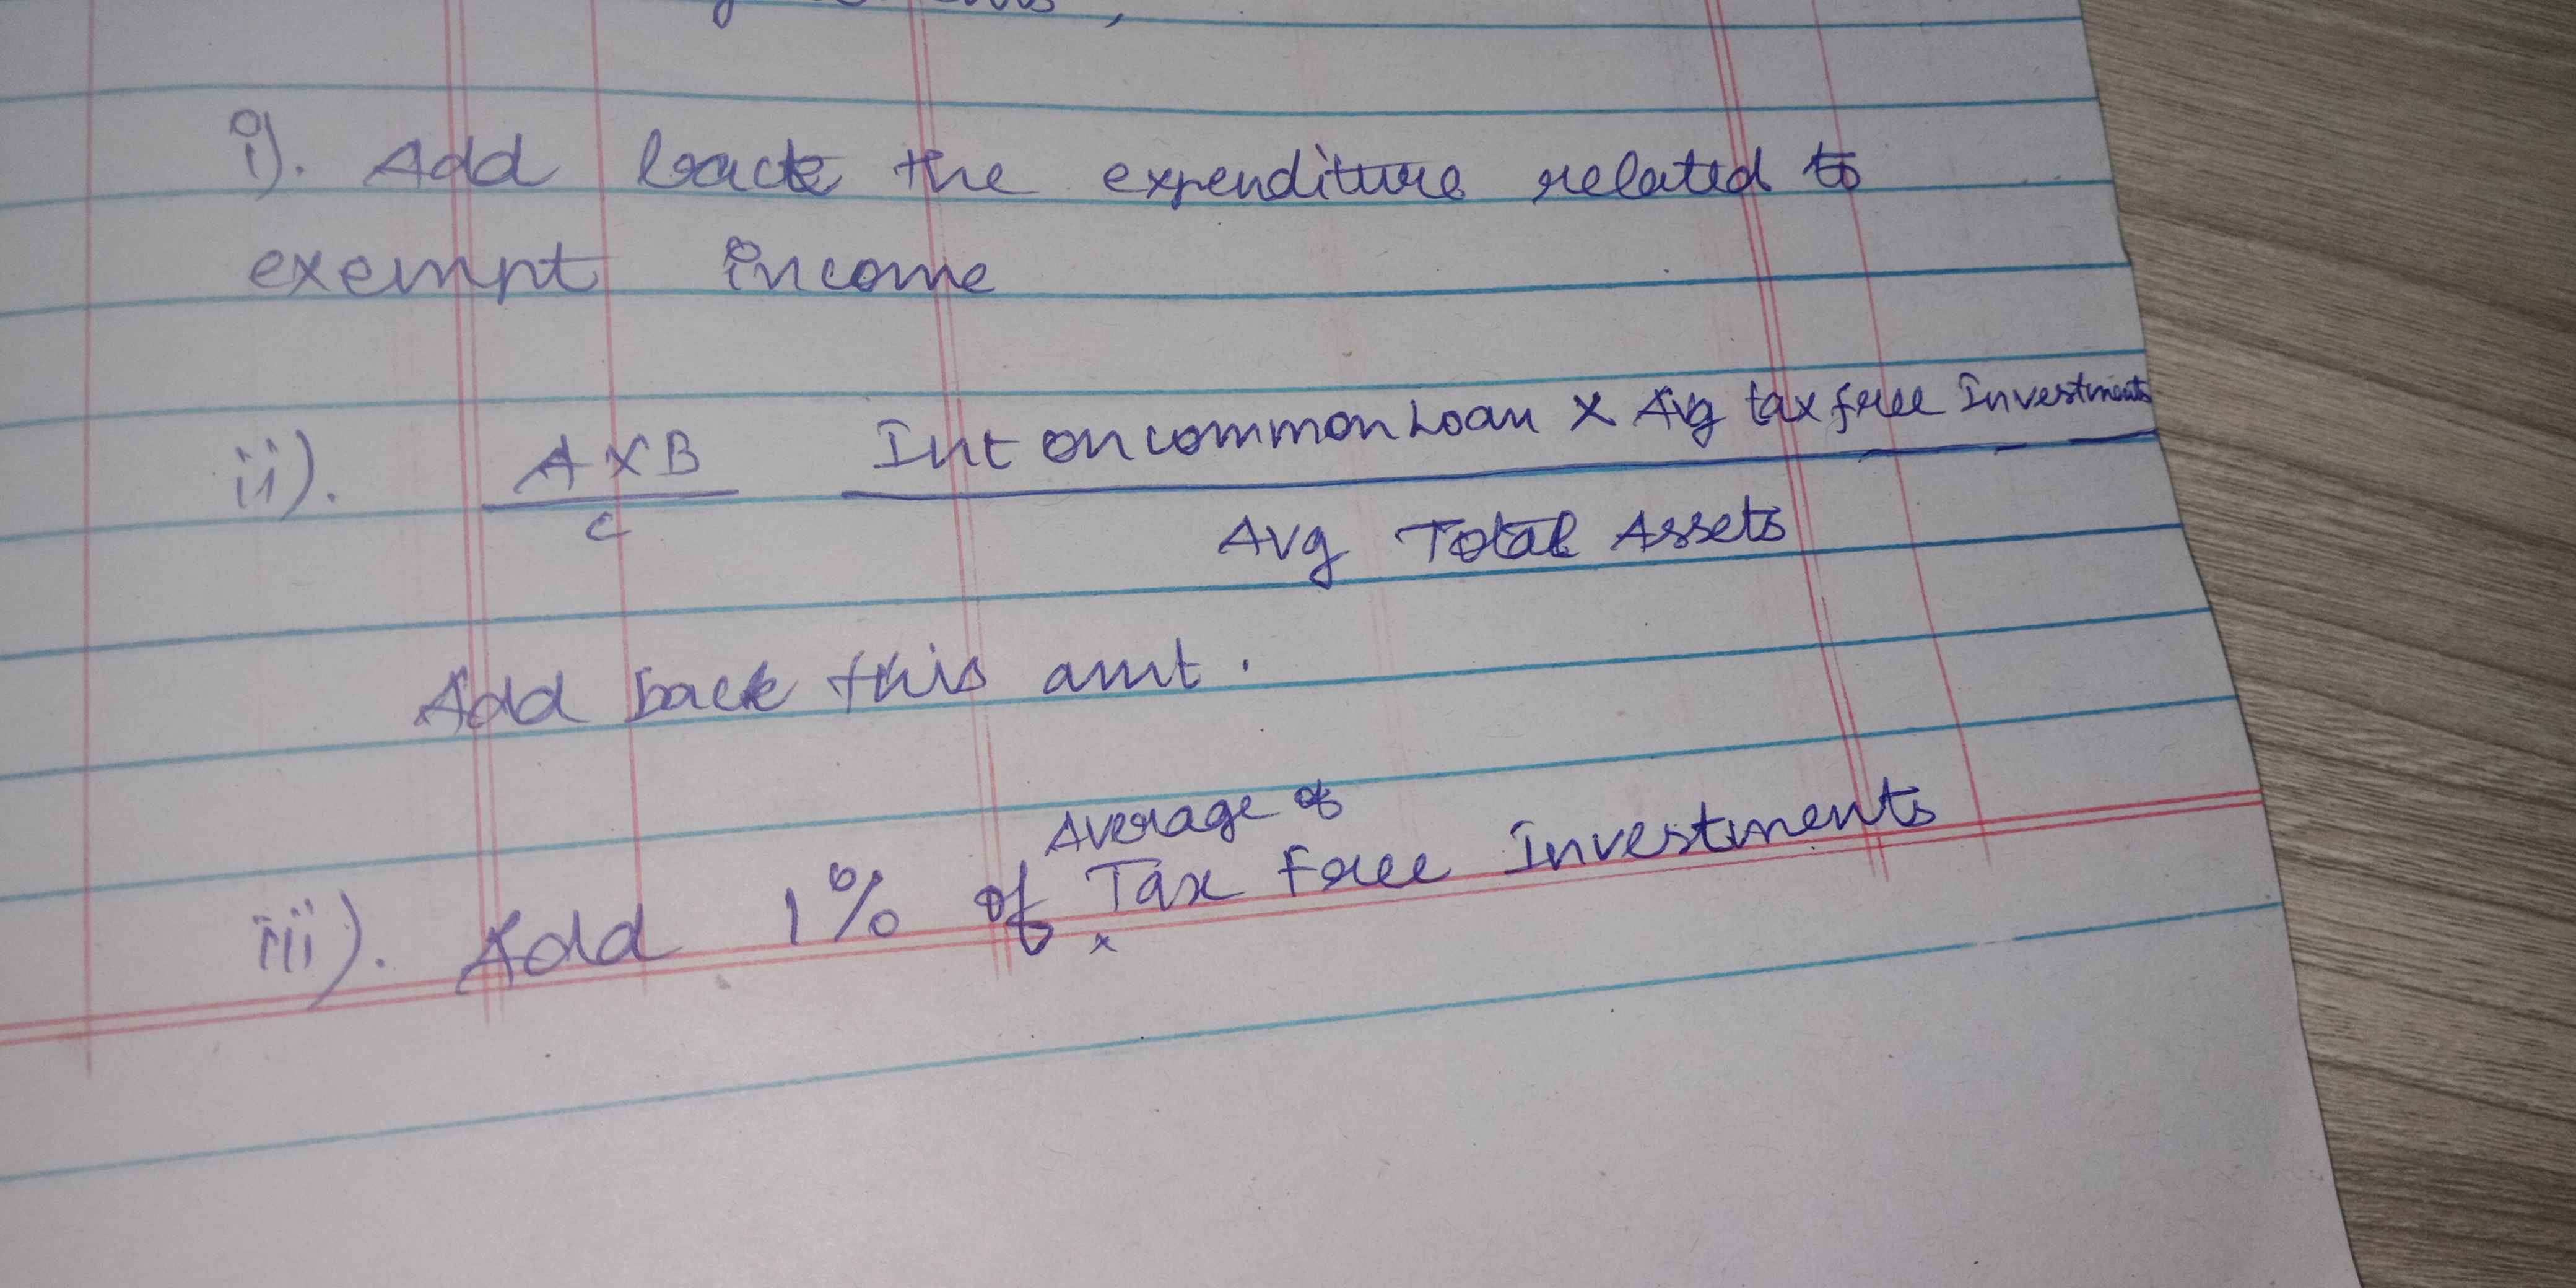 i). Add back the expenditure related to
exempt income
ii). A X B / c Int on common Loan X Avg tax free Investments / Avg Total Assets
Add back this amt.
Average of
iii). Add 1% of Tax Free Investments
x